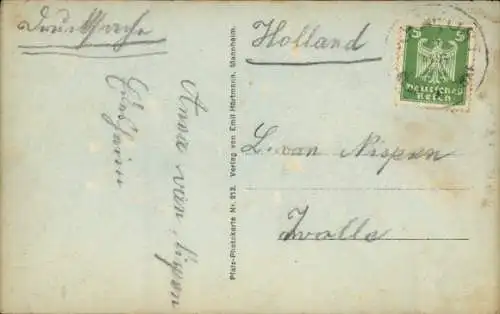 Drucksache
Holland
5 5
Deutsches
Reich
Anna van Nispen
L. van Nispen
Zwolle
Pfalz-Photokarte Nr. 212. Verlag von Emil Hartmann, Mannheim.